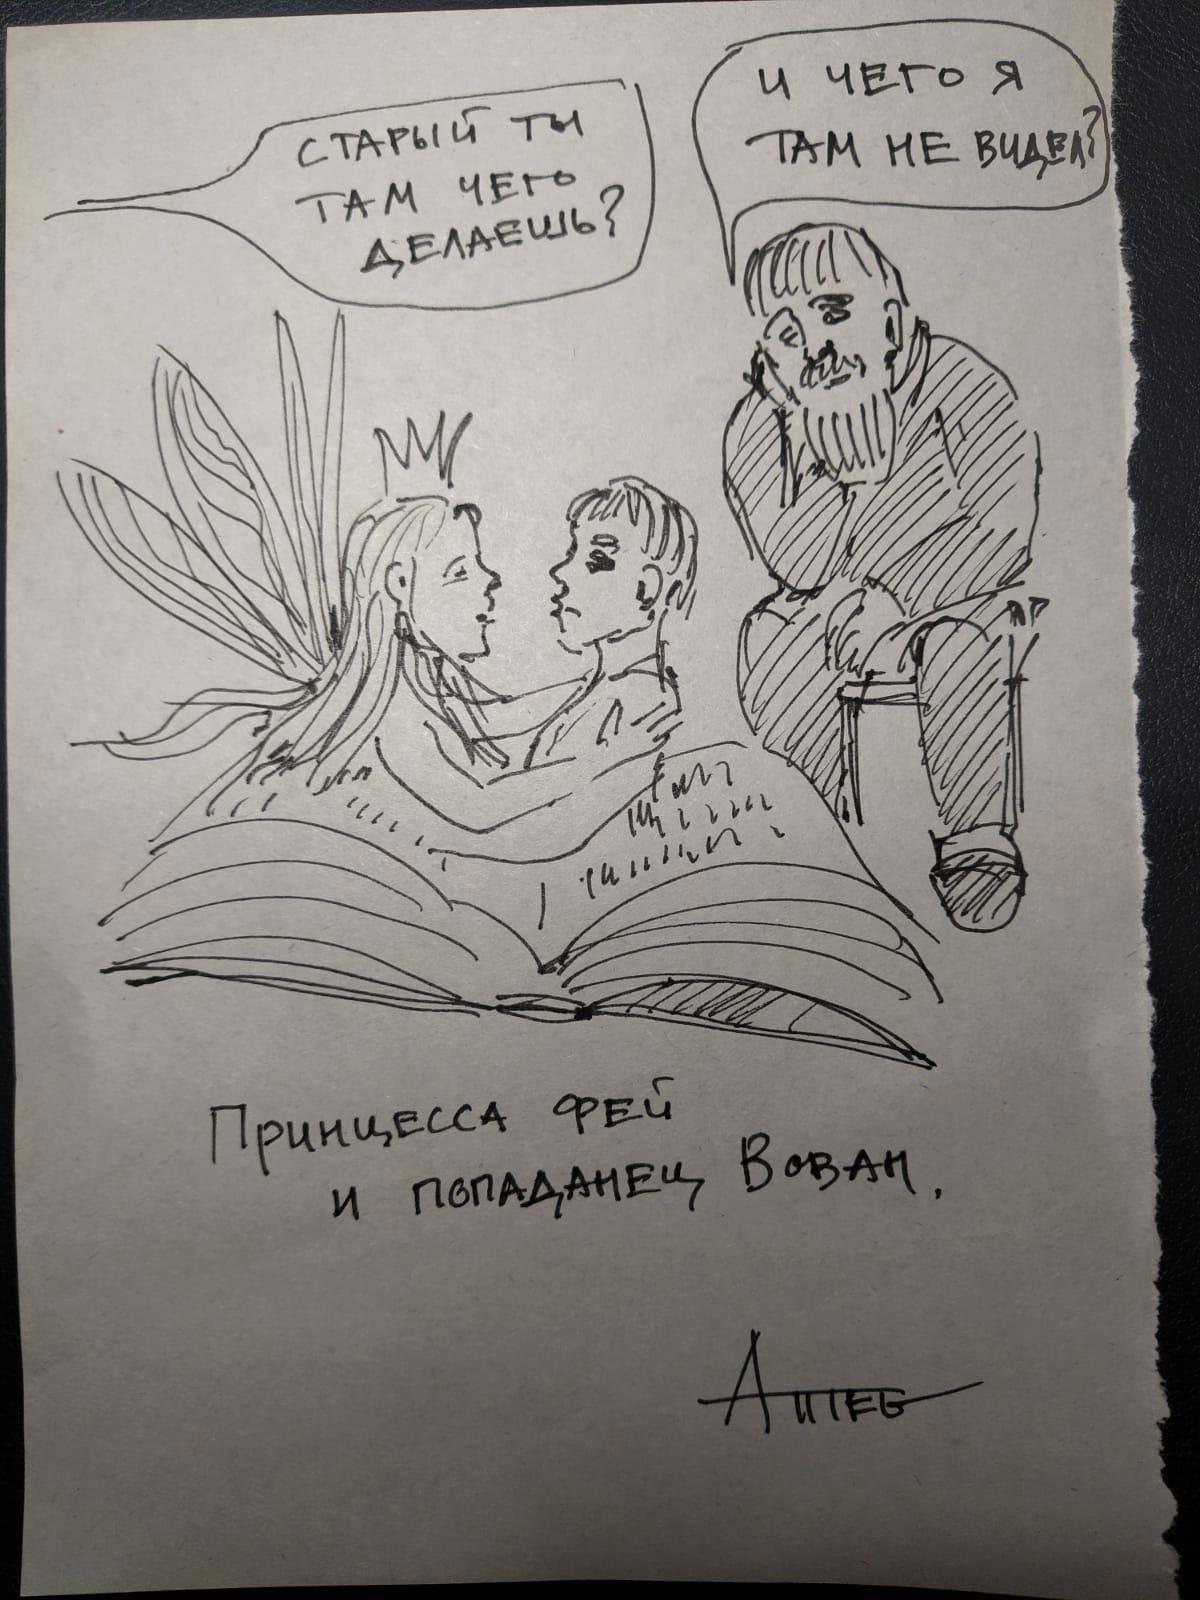 СТАРЫЙ ТЫ
ТАМ ЧЕГО
ДЕЛАЕШЬ?
И ЧЕГО Я
ТАМ НЕ ВИДЕЛ?
ПРИНЦЕССА ФЕЙ
И ПОПАДАНЕЦ ВОВАН.